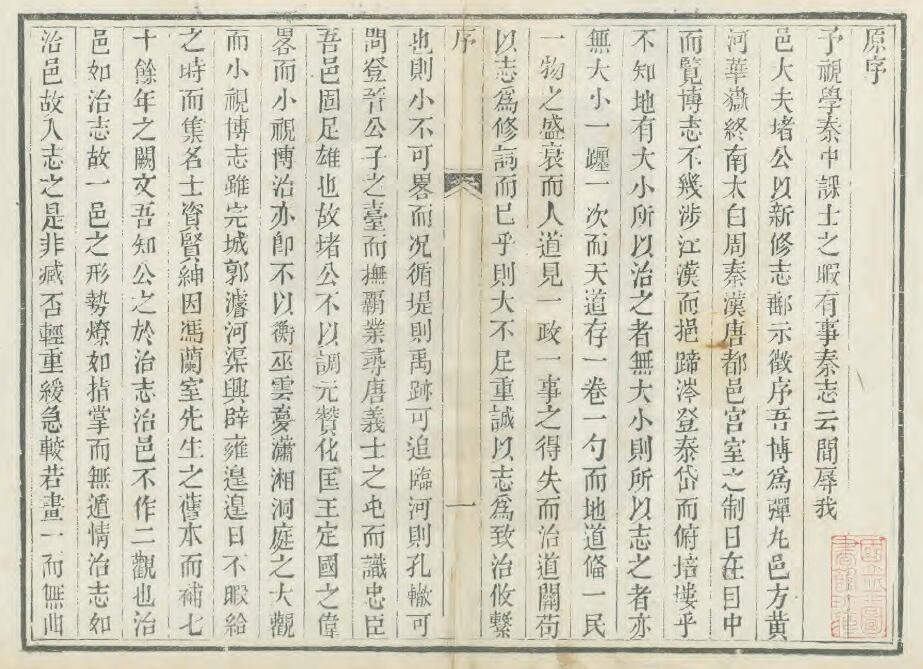 原序
予視學秦中課士之暇有事秦志云間辱我
邑大夫堵公以新修志郵示徵序吾博爲彈丸邑方黃
河華嶽終南太白周秦漢唐都邑宮室之制日在目中
而覽博志不幾涉江漢而挹蹄涔登泰岱而俯培塿乎
不知地有大小所以治之者無大小則所以志之者亦
無大小一躔一次而天道存一卷一勺而地道備一民
一物之盛衰而人道見一政一事之得失而治道關茍
以志爲修詞而已乎則大不足重誠以志爲致治攸繫
序 一
也則小不可畧而况循堤則禹跡可追臨河則孔轍可
問登晉公子之臺而撫霸業尋唐義士之屯而識忠臣
吾邑固足雄也故堵公不以調元贊化匡王定國之偉
畧而小視博治亦卽不以衡巫雲夢瀟湘洞庭之大觀
而小視博志雖完城郭濬河渠興辟雍遑遑日不暇給
之時而集名士資賢紳因馮蘭室先生之舊本而補七
十餘年之闕文吾知公之於治志治邑不作二觀也治
邑如治志故一邑之形勢燎如指掌而無遁情治志如
治邑故入志之是非臧否輕重緩急較若畫一而無曲